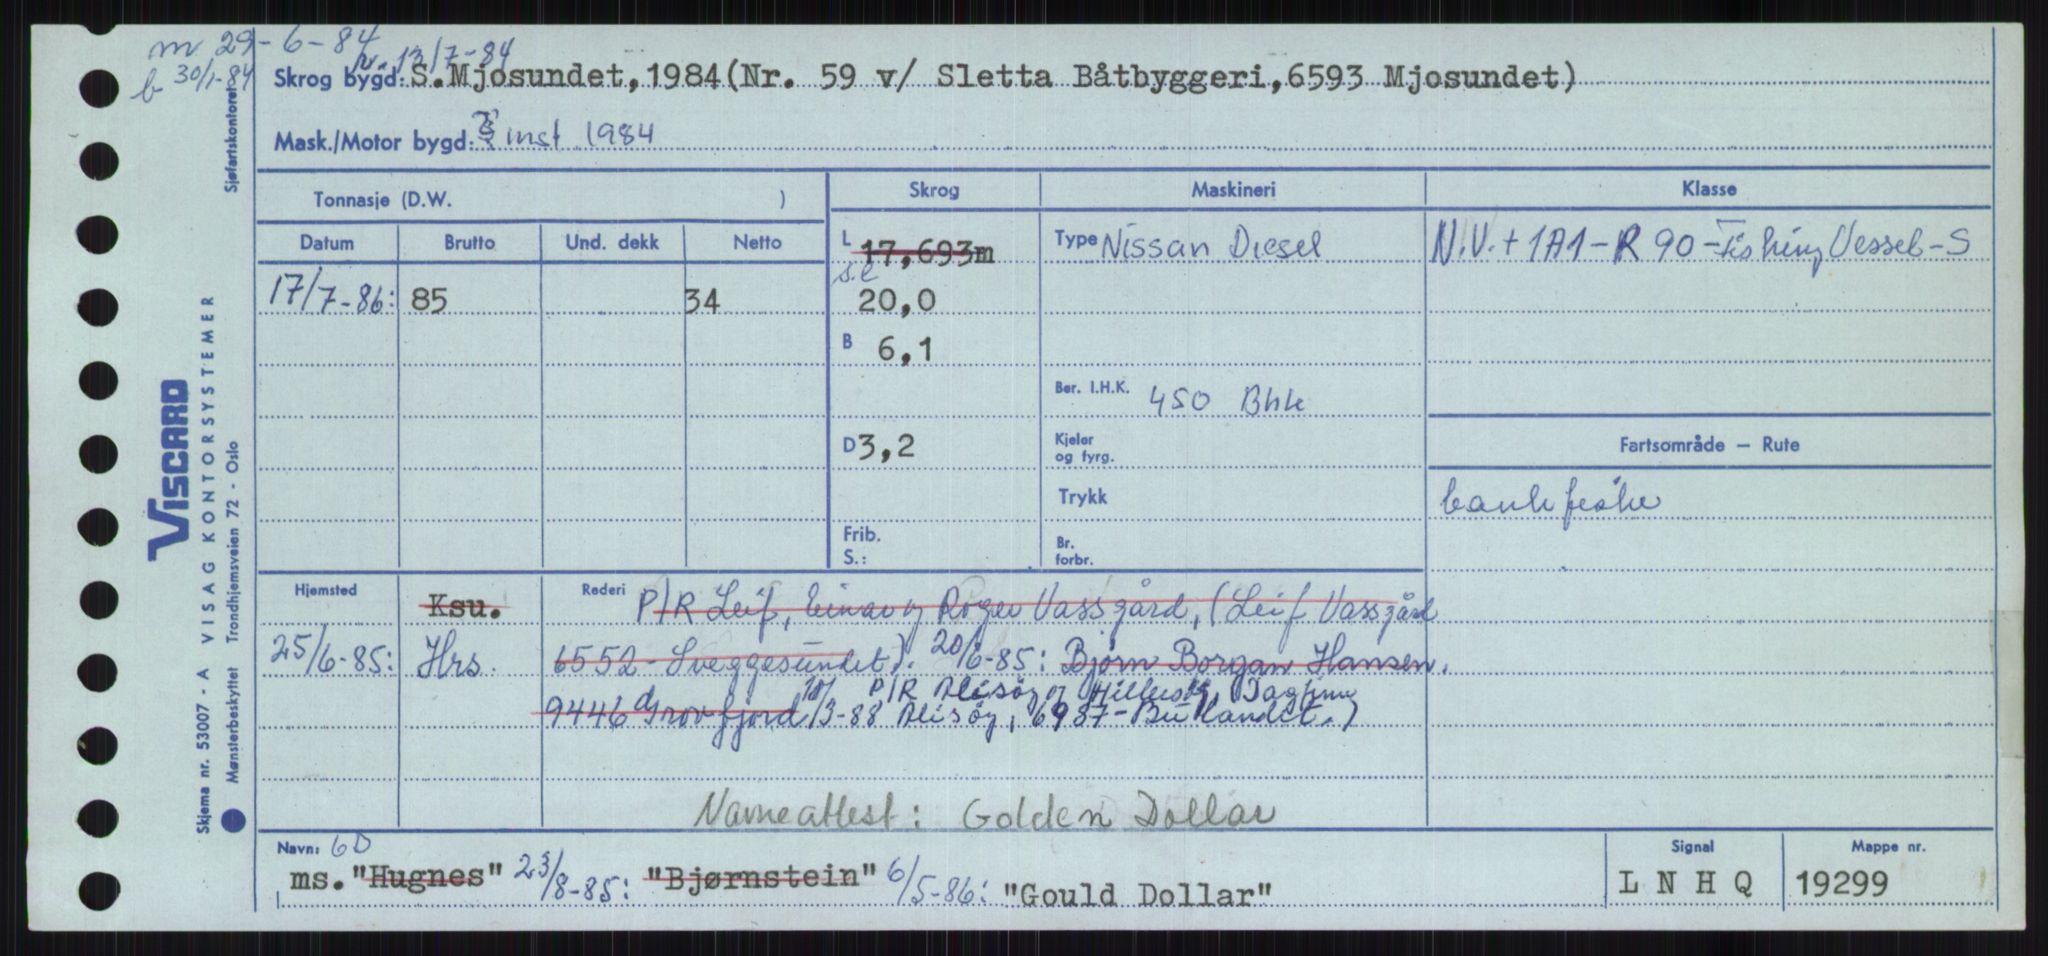 m 29-6-84
b 30/1-84 v. 13/7-84
Skrog bygd: S.Mjosundet,1984(Nr. 59 v/ Sletta Båtbyggeri,6593 Mjosundet)
Mask./Motor bygd: inst 1984
Sjøfartskontoret
Tonnasje (D.W. )
Skrog Maskineri Klasse
Datum Brutto Und. dekk Netto
L 17,693m Type Nissan Diesel N.V. + 1A1 - R 90 - Fishing Vessel - S
s.e
17/7-86: 85 34 20,0
B 6,1
Ber. I.H.K. 450 Bhk
D 3,2 Kjeler og fyrg. Fartsområde — Rute
Trykk bankfiske
Frib. S.: Br. forbr.
Hjemsted Ksu. Rederi P/R Leif, Einar og Roger Vassgård, (Leif Vassgård
25/6-85: Hrs. 6552 - Sveggesundet). 20/6-85: Bjørn Borgan Hansen.
9446 Grovfjord 10/3-88 P/R Alisøy og Hillersøy, Dagfinn
Alisøy, 6987 - Bulandet.)
Navneattest: Golden Dollar
Navn: GD
ms. "Hugnes" 23/8-85: "Bjørnstein" 6/5-86: "Gould Dollar"
Signal L N H Q Mappe nr. 19299
VISCARD
VISAG KONTORSYSTEMER
Skjema nr. 53007 - A
Mønsterbeskyttet Trondhjemsveien 72 - Oslo